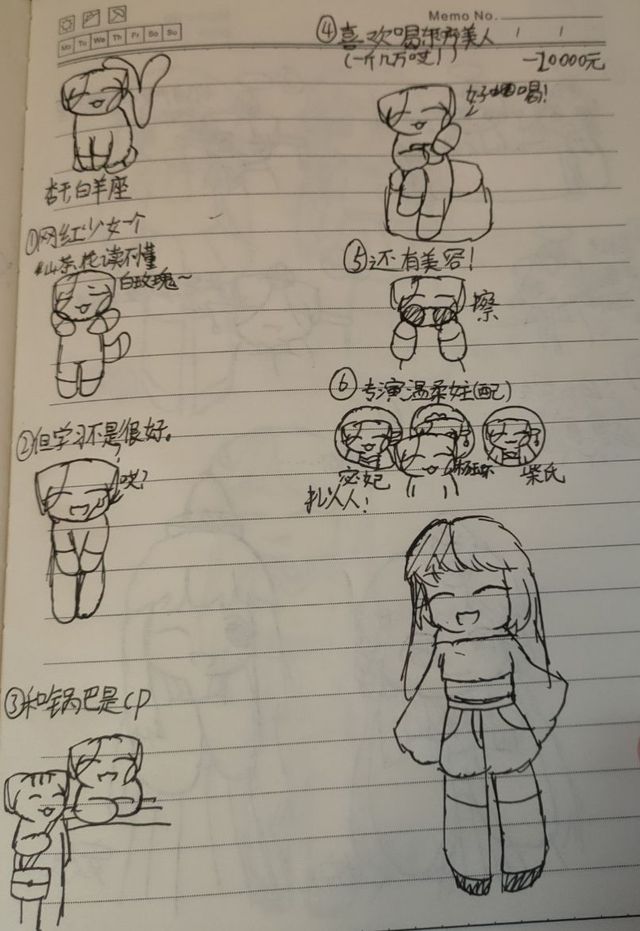 Memo No.
Mo Tu We Th Fr Sa Su
杏子白羊座
①网红少女一个
山茶花读不懂
白玫瑰~
②但学习不是很好。
哎?
③和锅巴是cp
④喜欢喝东方美人
(一斤几万哎!)
-20000元
好喝!
⑤还有美容!
擦
⑥专演温柔女主(配)
宓妃
柴氏
扎人人!